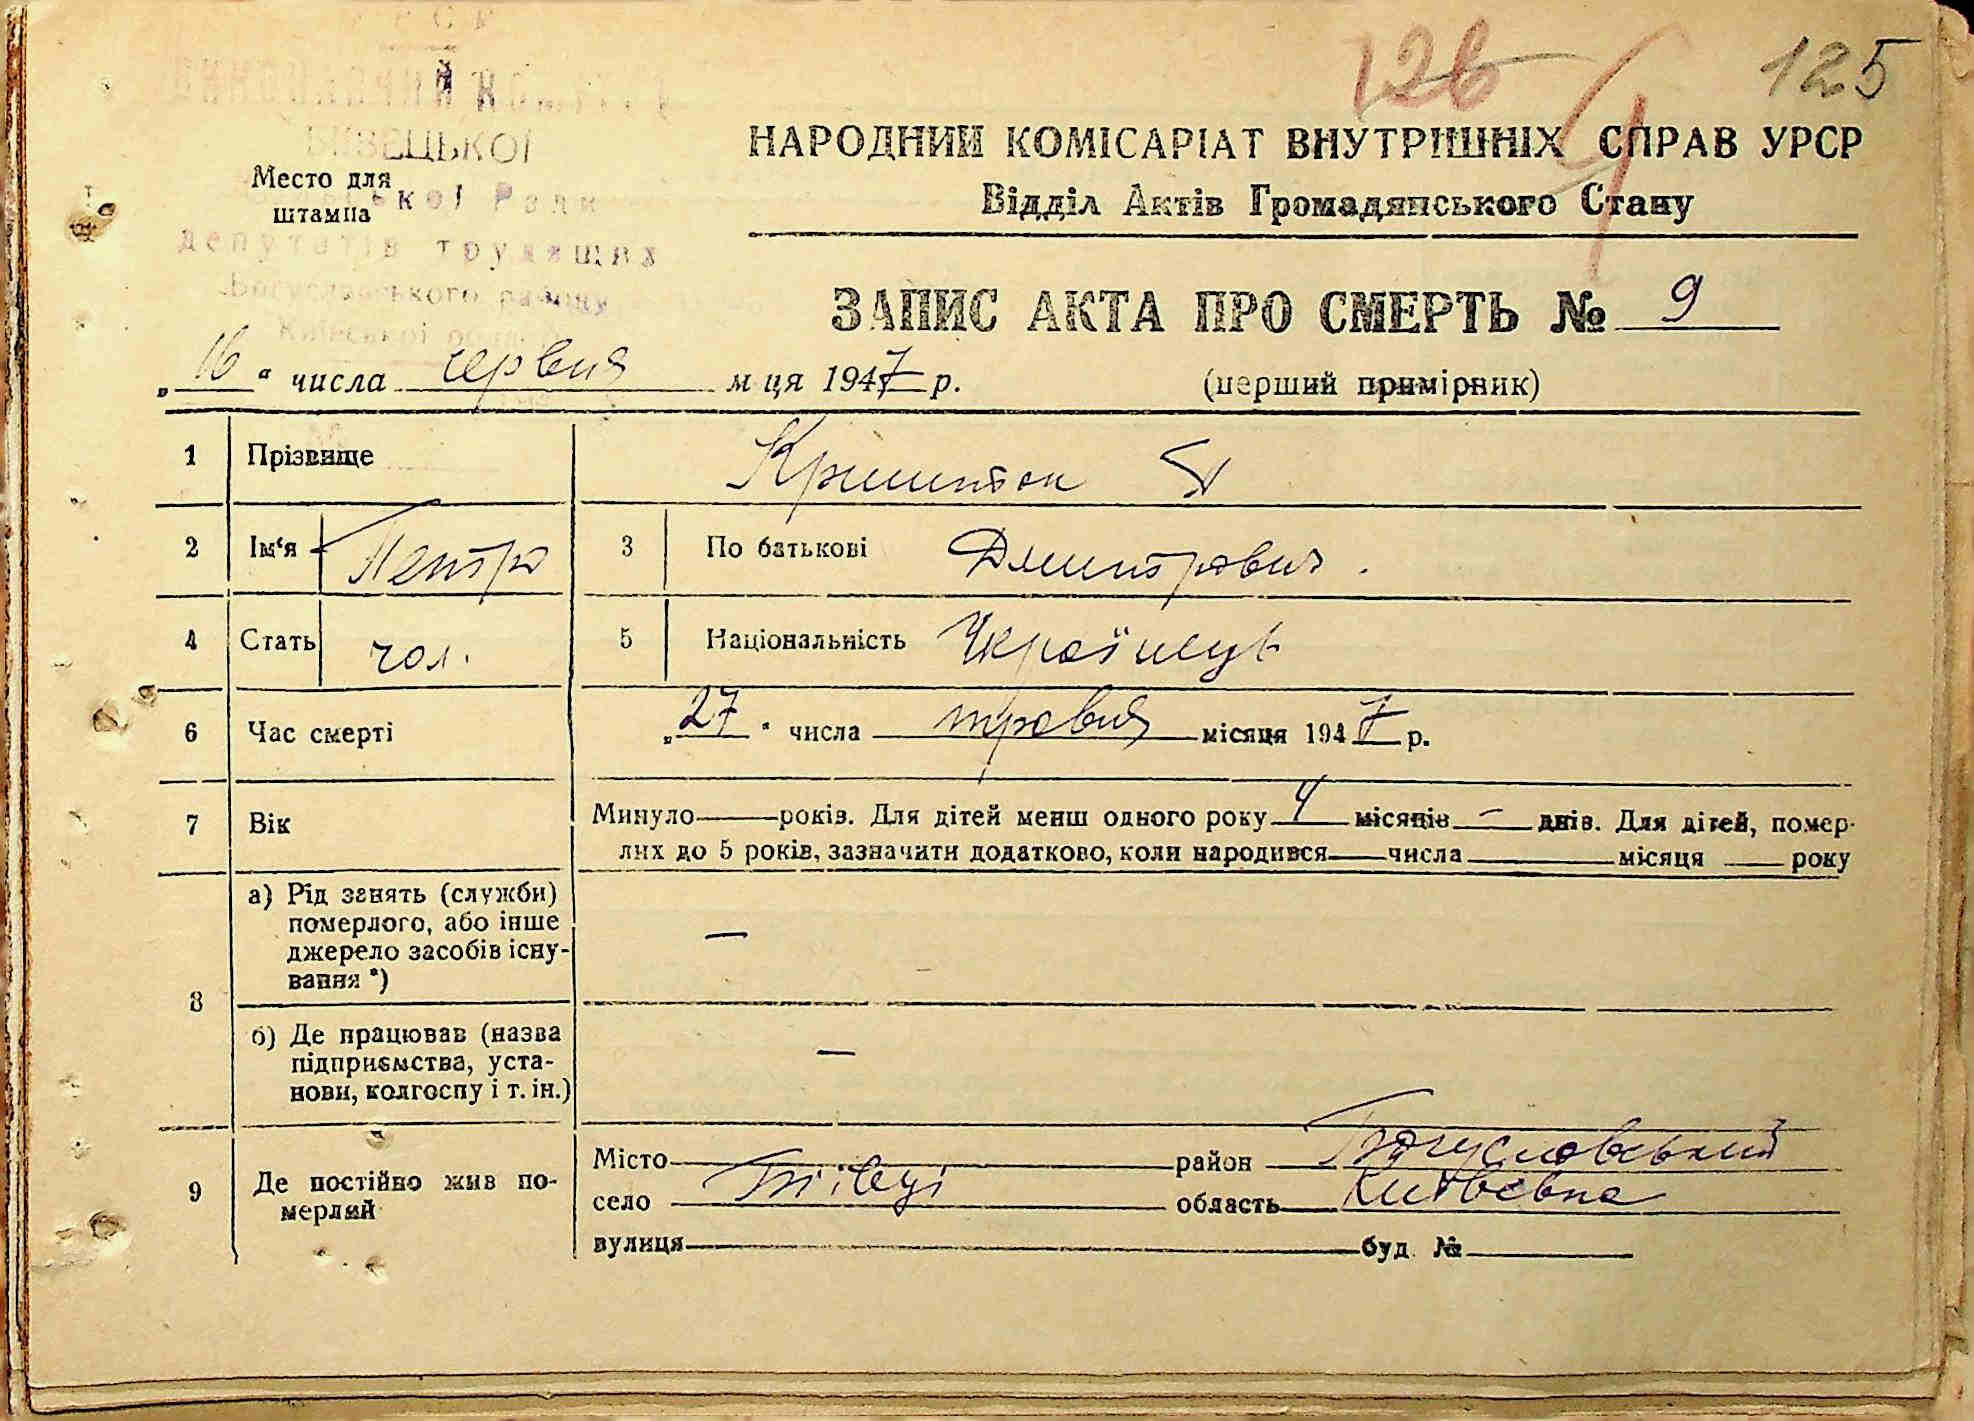 126 4 125
УРСР
ВИКОНАВЧИЙ КОМІТЕТ
БІІВЕЦЬКОІ
НАРОДНИЙ КОМІСАРІАТ ВНУТРІШНІХ СПРАВ УРСР
Место для
штампа
Відділ Актів Громадянського Стану
депутатів трудящих
Богуславського району
Київської області
ЗАПИС АКТА ПРО СМЕРТЬ № 9
„16“ числа червня м ця 1947 р. (перший примірник)
1 Прізвище
2 Ім‘я Петро 3 По батькові Дмитрович.
4 Стать чол. 5 Національність Українець
6 Час смерті „27“ числа травня місяця 1947 р.
7 Вік Минуло — років. Для дітей менш одного року 4 місяців - днів. Для дітей, помер-
лих до 5 років, зазначити додатково, коли народився — числа — місяця — року
8 а) Рід занять (служби)
померлого, або інше
джерело засобів існу-
вання *) —
б) Де працював (назва
підприємства, уста-
нови, колгоспу і т. ін.) —
9 Де постійно жив по-
мерлий
Місто район Богуславський
село Біївці область Київська
вулиця буд. №